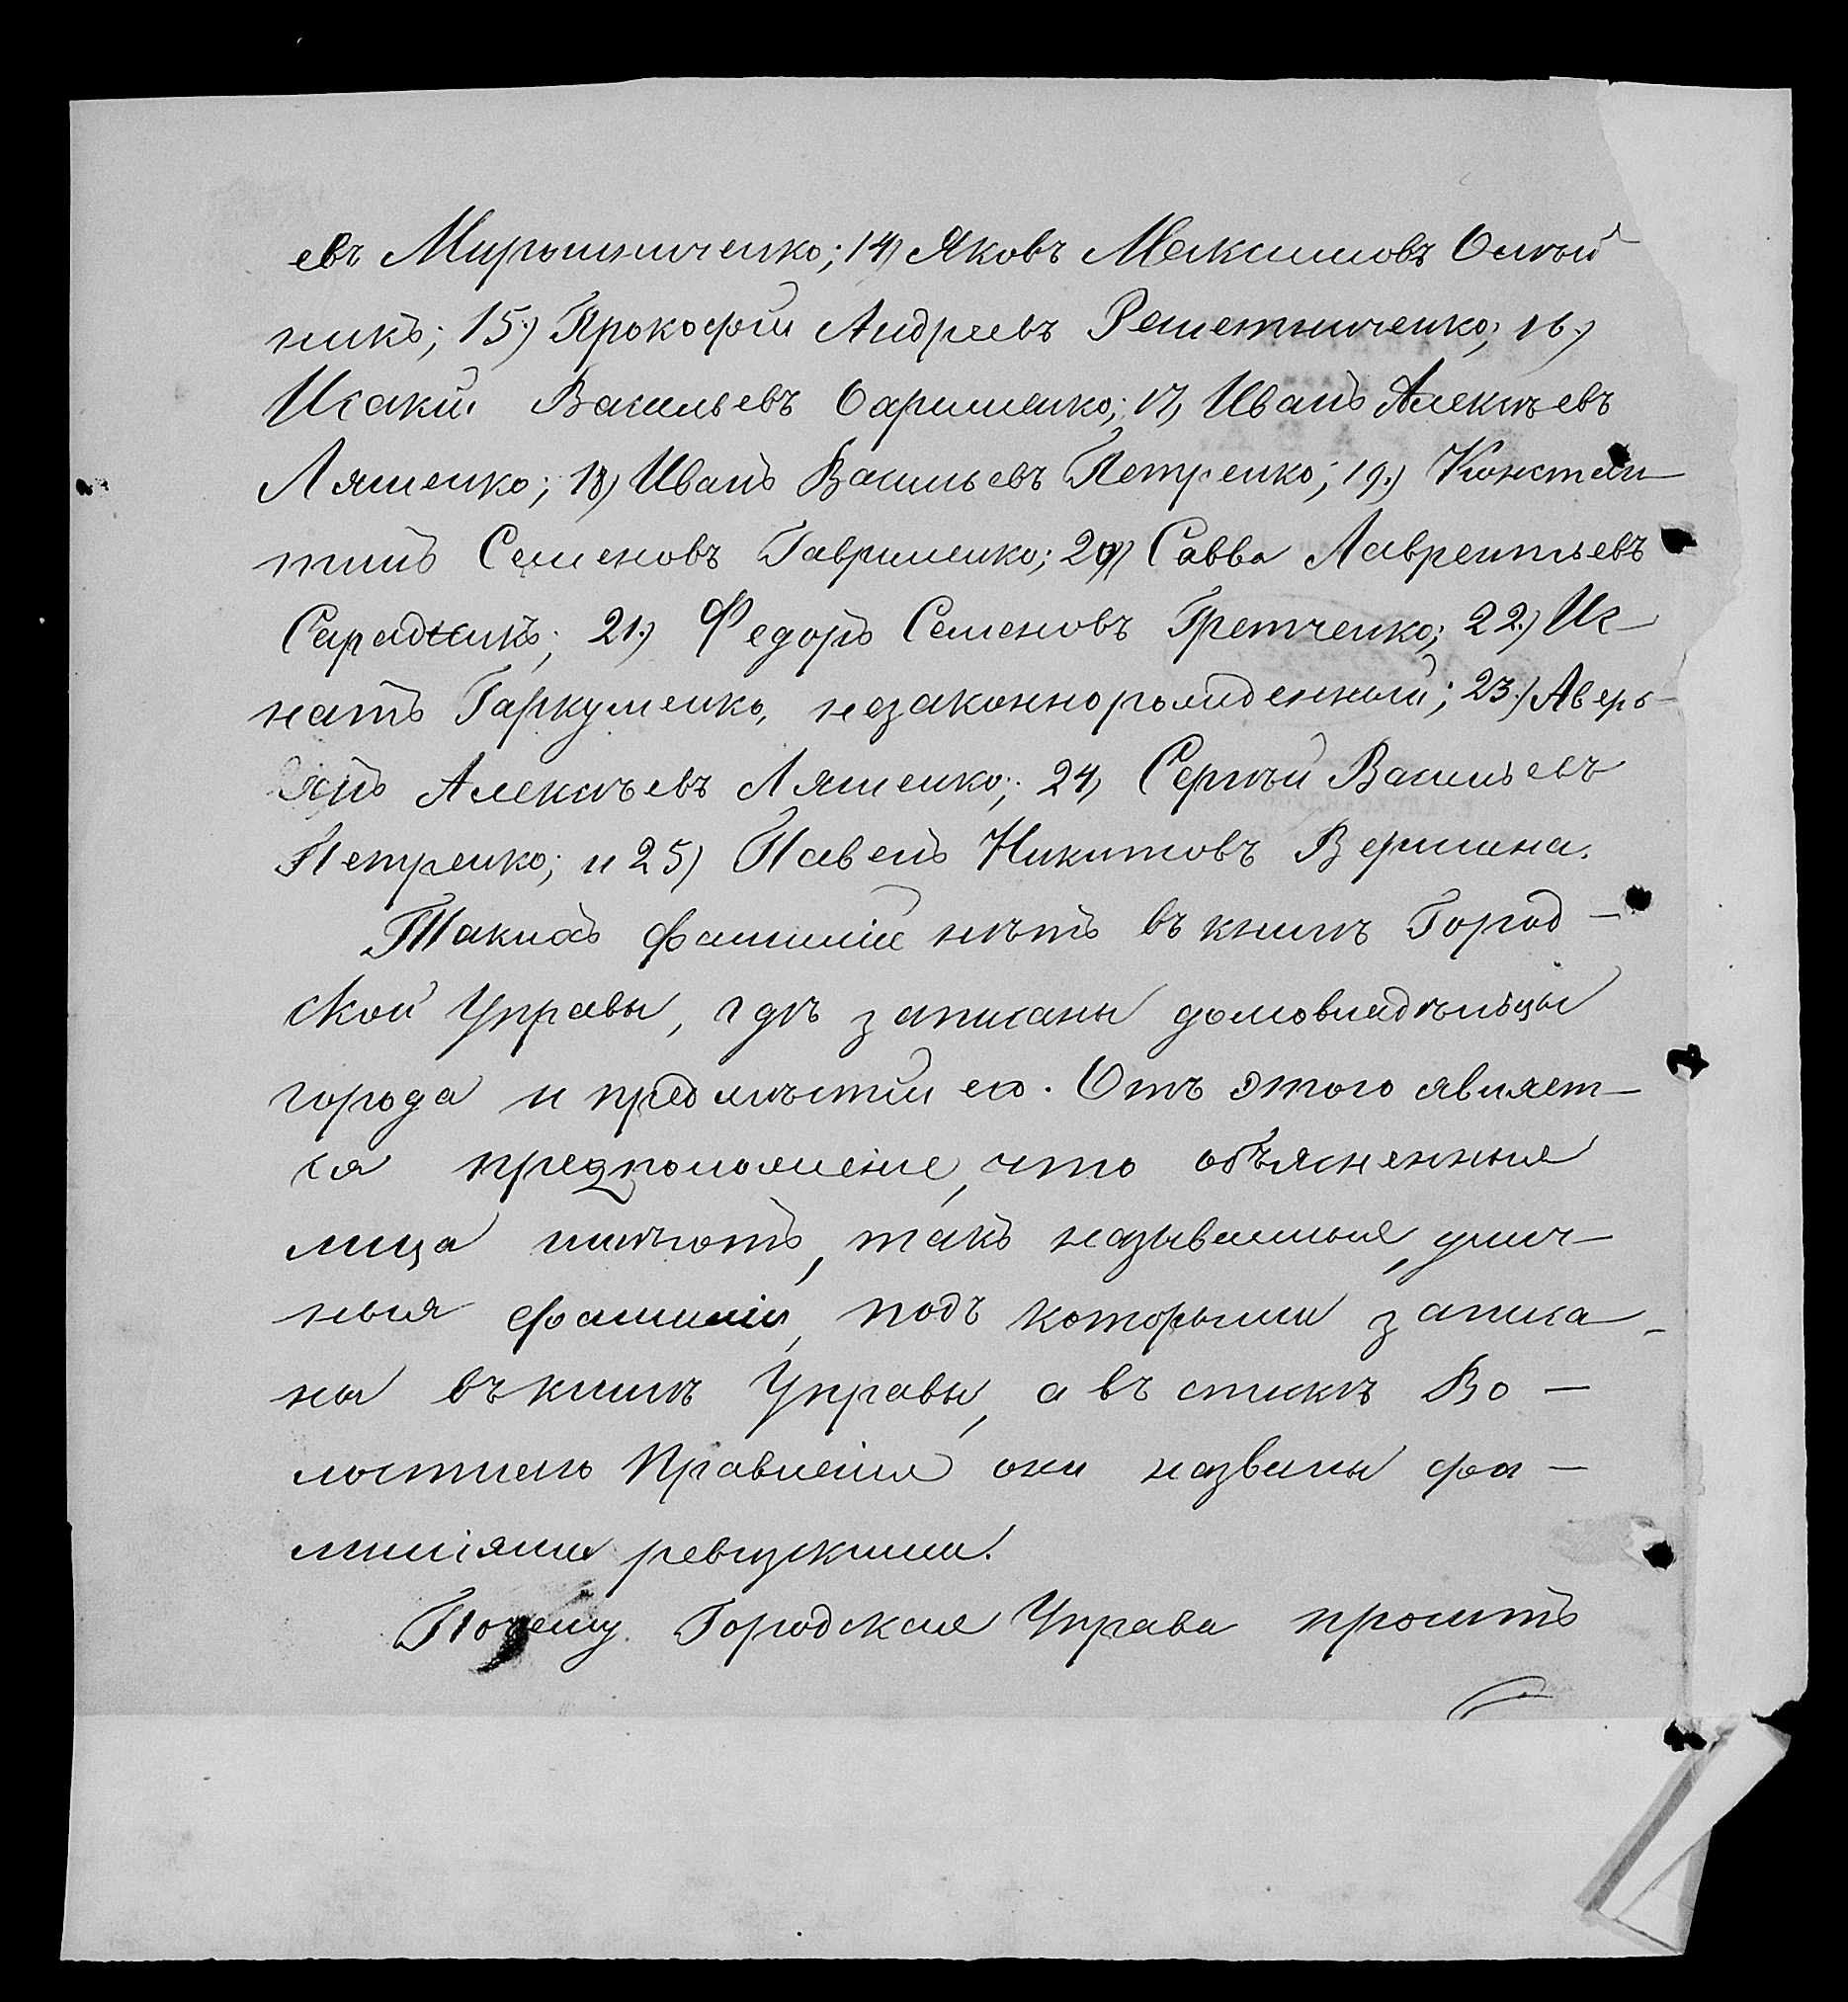 евъ Мирошниченко; 14) Яковъ Максимовъ Олѣй
никъ; 15.) Прокофій Андреевъ Решетниченко; 16.)
Исакій Васильевъ Саримленко; 17) Иванъ Алексѣевъ
Ляшенко; 18) Иванъ Васильевъ Петренко; 19.) Констан–
тинъ Семеновъ Гавриленко; 20) Савва Лаврентьевъ
Сараджикъ; 21.) Федоръ Семеновъ Гретченко; 22.) Иг–
натъ Гаркушенко, незаконнорожденный; 23.) Аверь–
янъ Алексѣевъ Ляшенко; 24) Сергѣй Васильевъ
Петренко; и 25) Павелъ Никитовъ Вершина.
Такихъ фамилій нѣтъ въ книгѣ Город–
ской Управы, гдѣ записаны домовладѣльцы
города и предмѣстій его. Отъ этого являет–
ся предположеніе, что объясненныя
лица имѣютъ, такъ называемыя, улич–
ныя фамиліи, подъ которыми записа–
ны въ книгѣ Управы, а въ спискѣ Во–
лостнаго Правленія они названы фа–
миліями ревизскими.
Почему Городская Управа проситъ